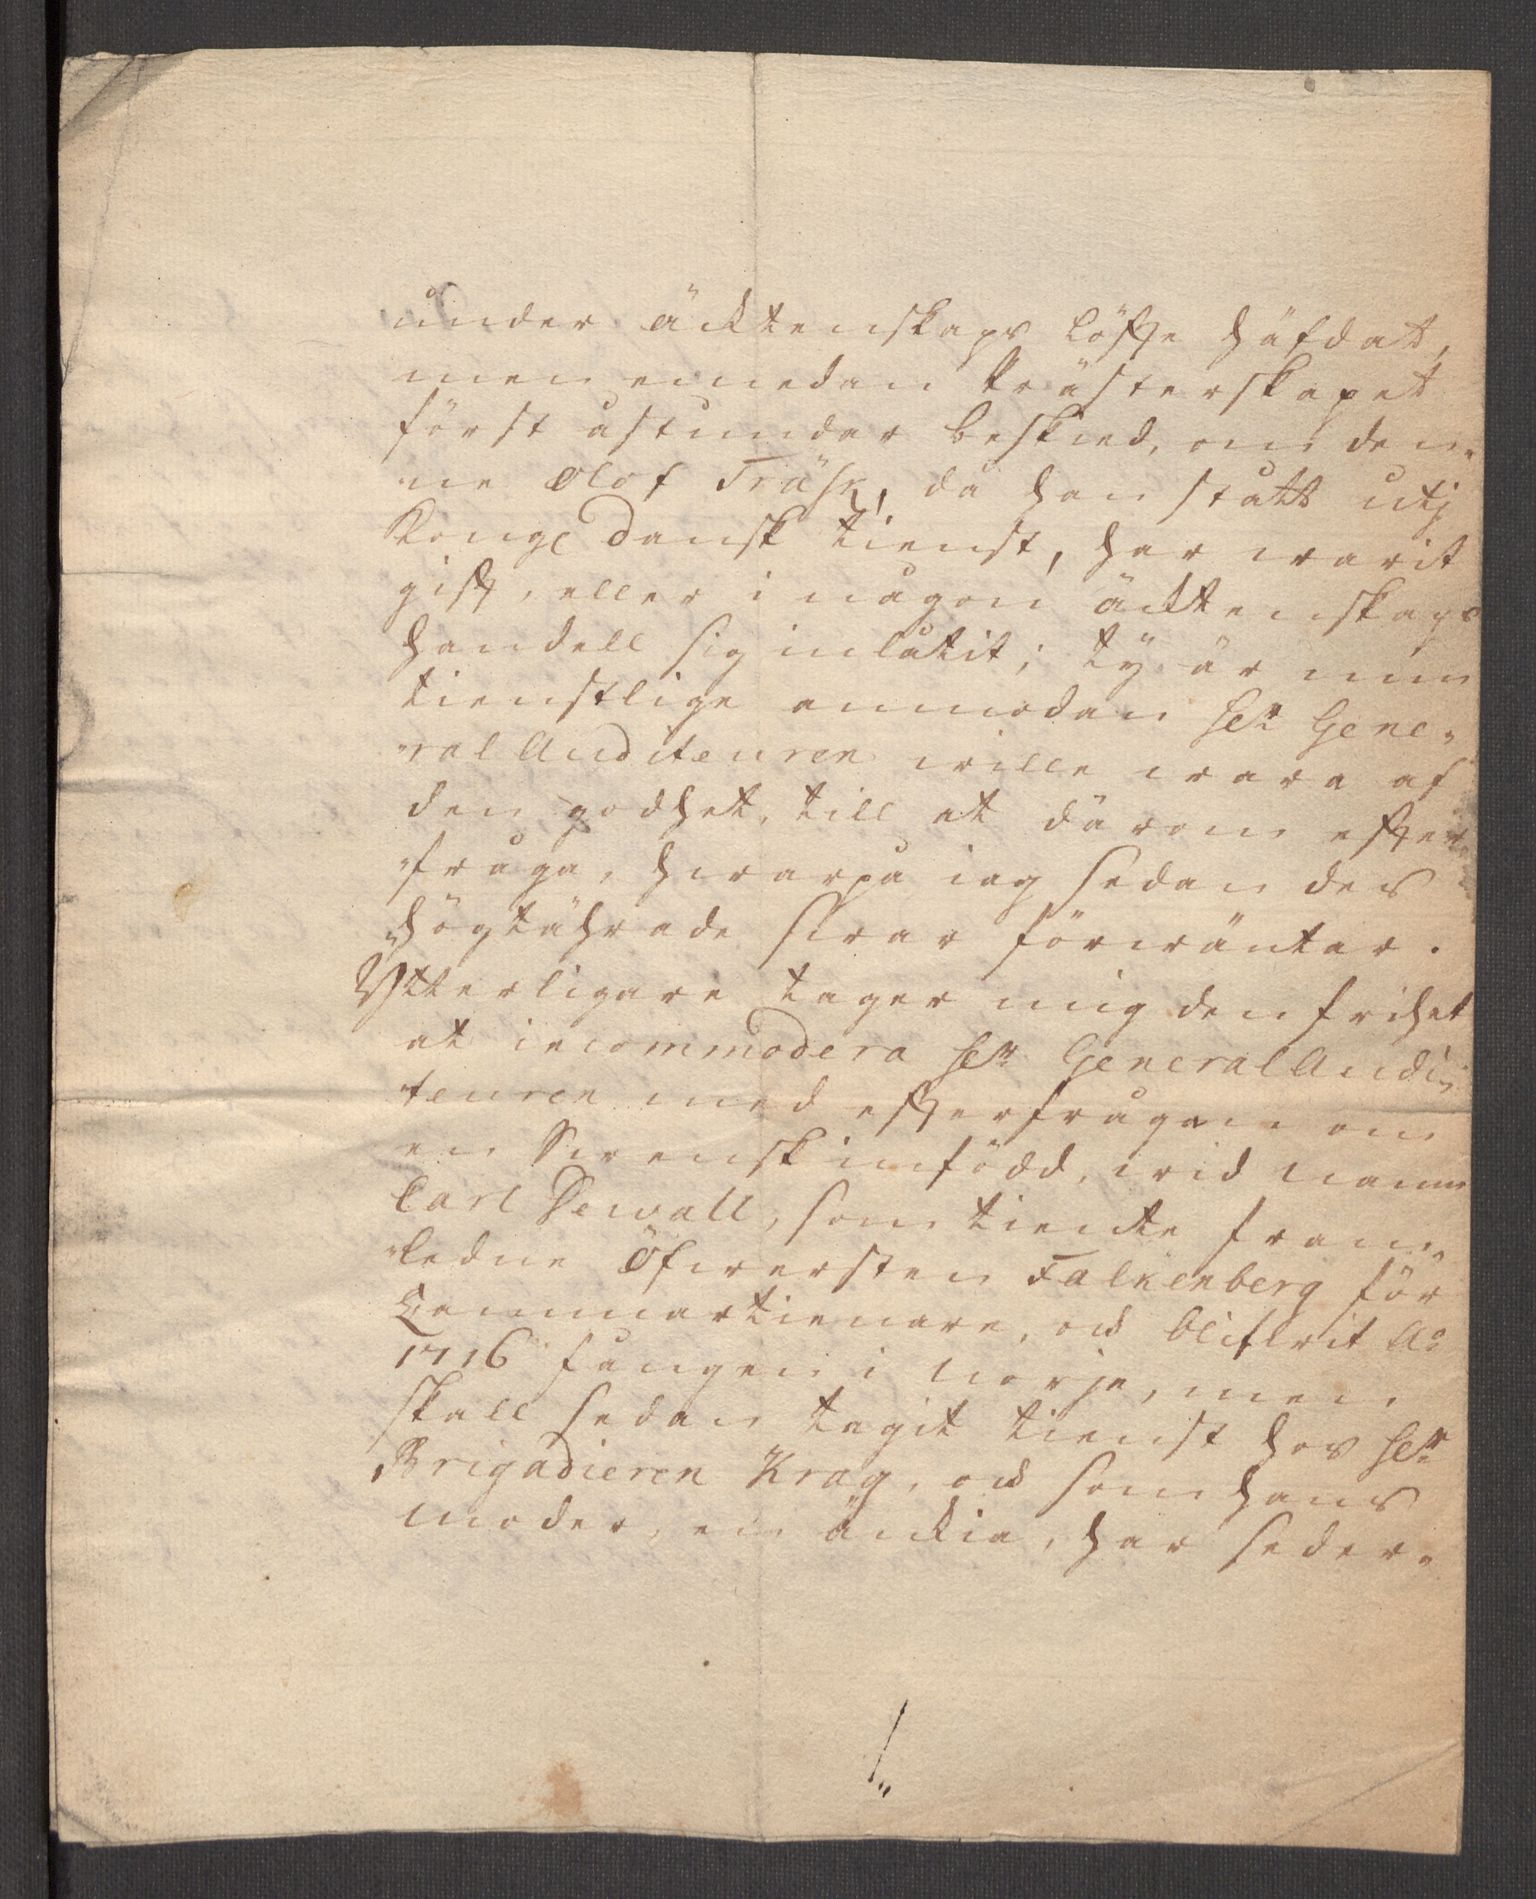 under äcktenskaps löffte häfdat,
men emedan Prästerskapet
först åstundar beskied, om den-
ne Olof Träsk, då han stått utj
Kongl dansk tienst, har warit
gifft, eller i någon äcktenskaps
handell sig inlåtit; ty är min
tienstlige anmodan Herr Gene-
ral Auditeuren wille wara af
den godhet, till at därom effter
fråga, hwarpå iag sedan des
högtährade swar förwäntar.
Ÿtterligare tager mig den frihet
at incommodera Herr General Audi-
teuren med effterfrågan om
en Swensk infödd, wid namn
Carl Sewall, som tiente fram-
ledne Öfwersten Falkenberg för
Cammartienare, och blifwit Ao
1716 fången i Norje, men
skall sedan tagit tienst hos Herr
Brigadieren Krag, och som hans
moder, en änckia, har seder-